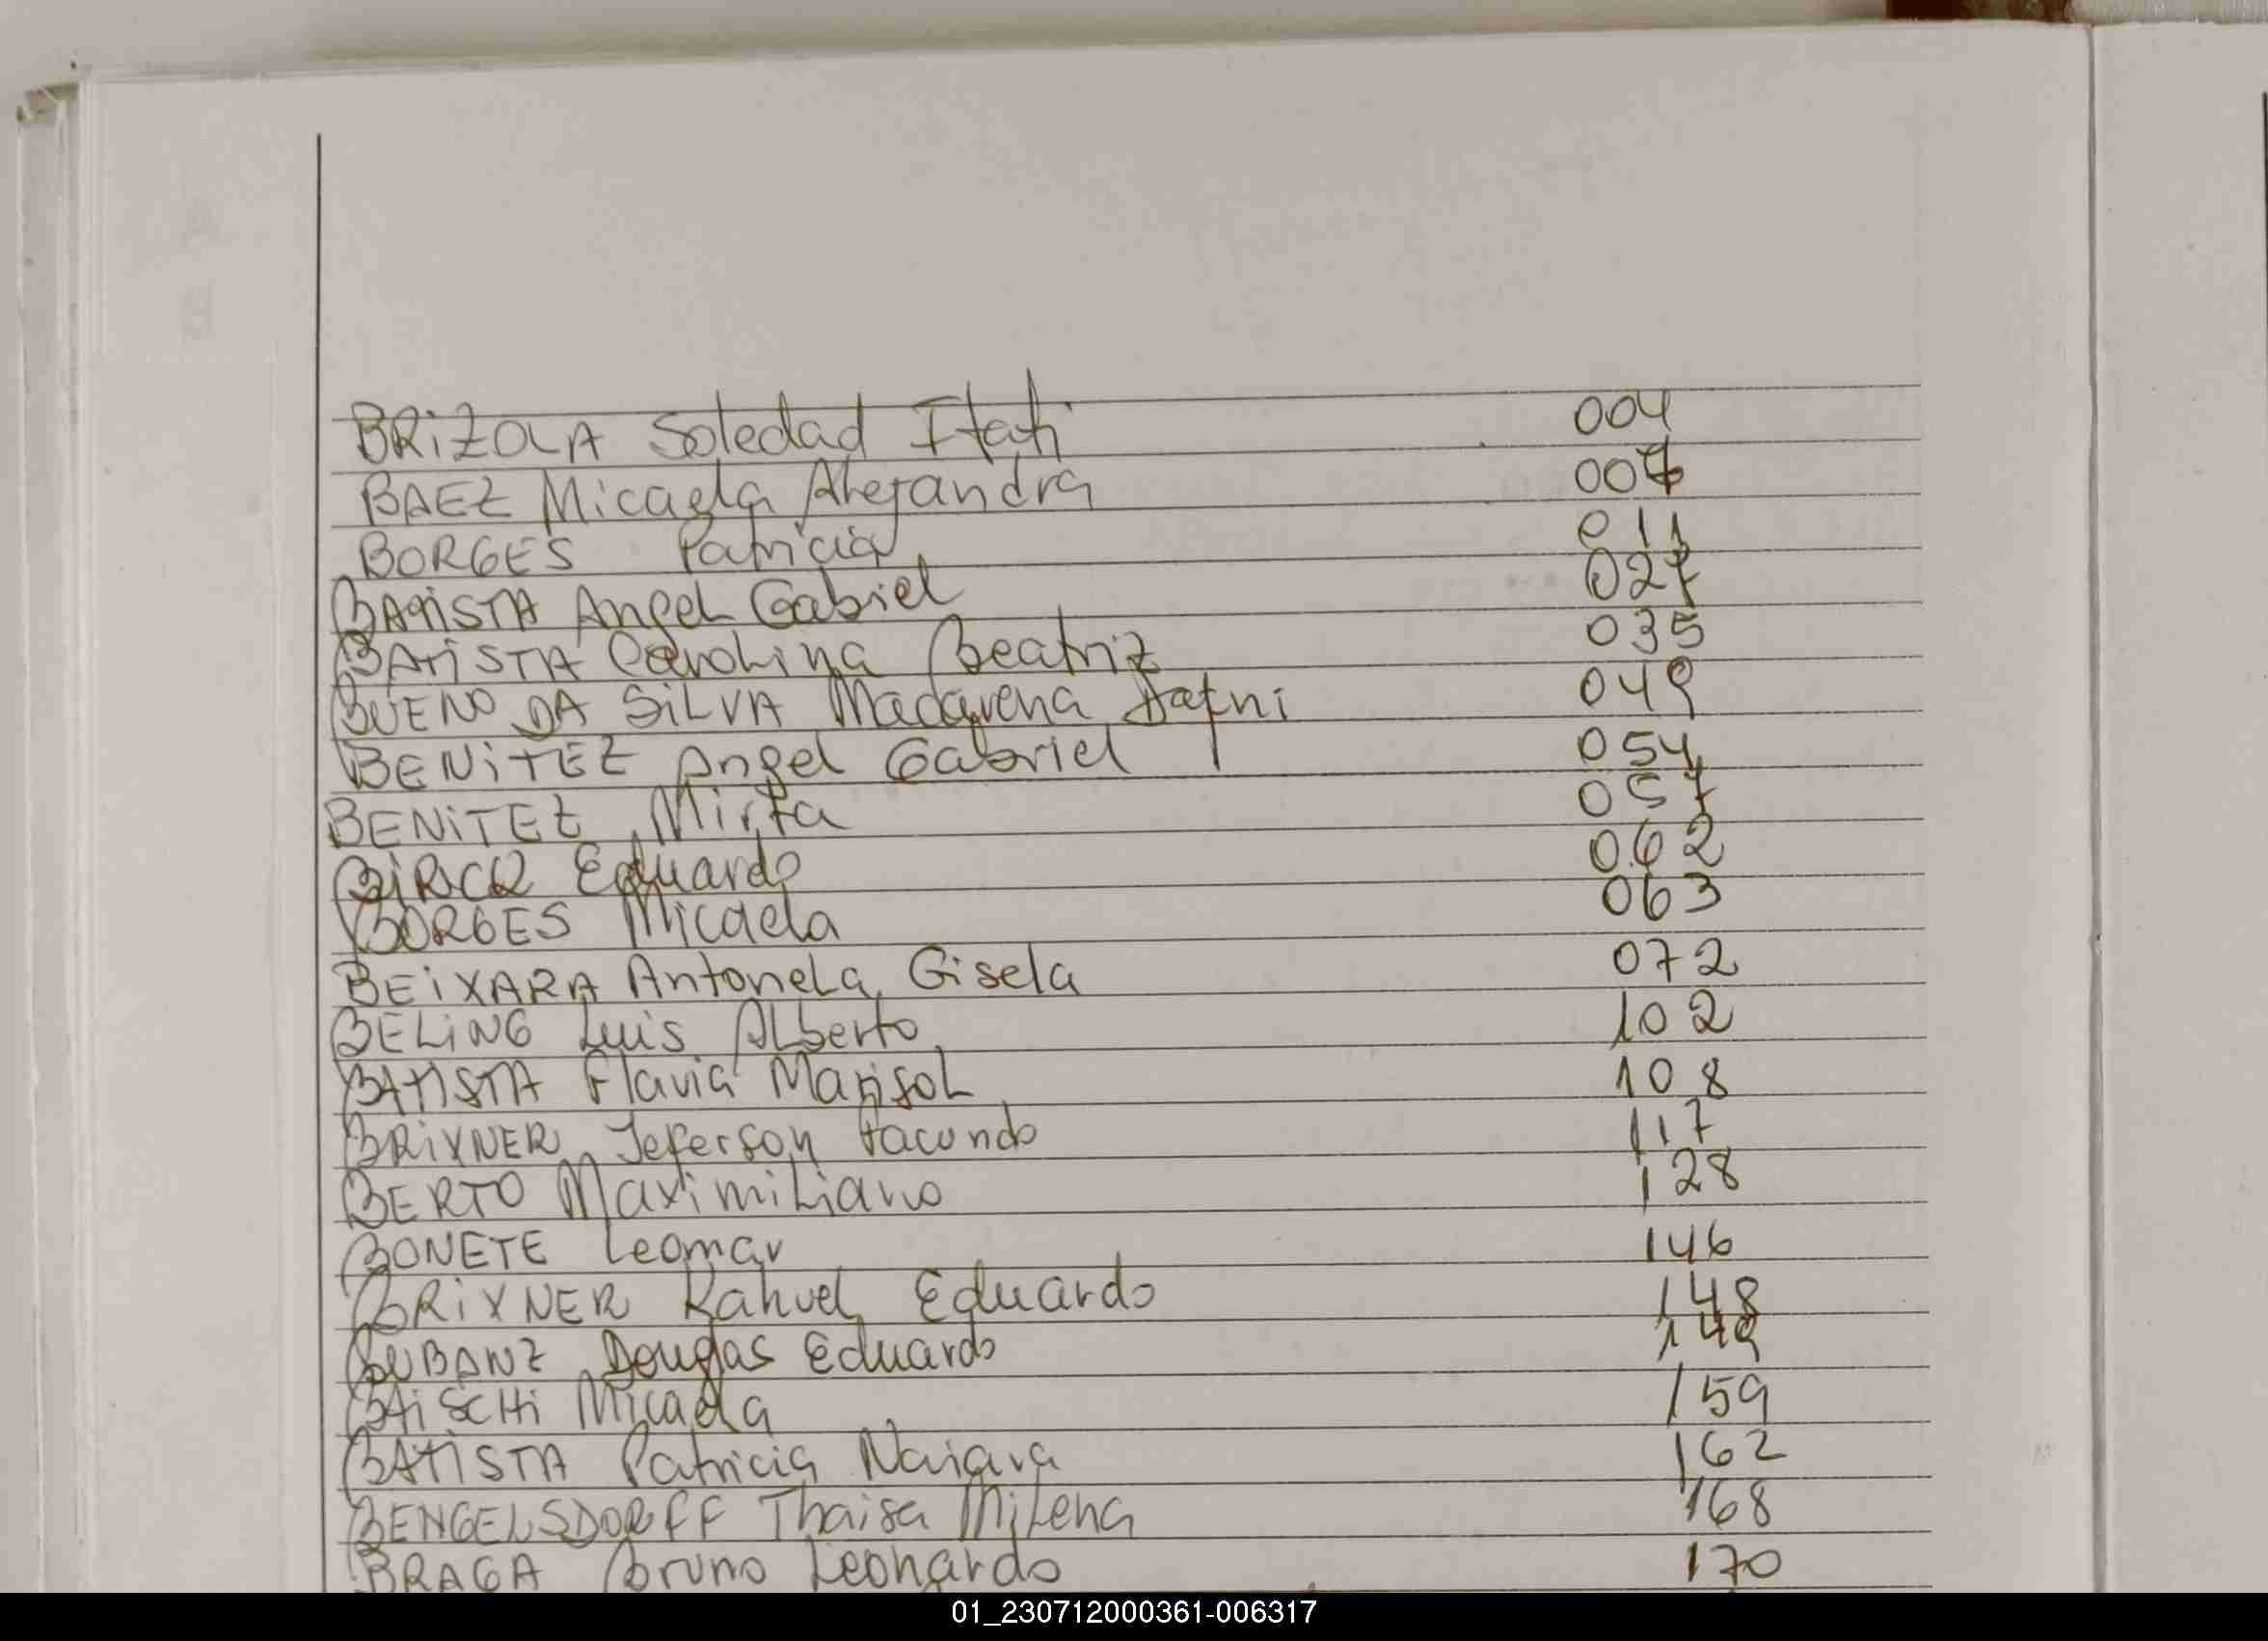 BRIZOLA Soledad Itati 004
BAEZ Micaela Alejandra 007
BORGES Patricia 011
BATISTA Angel Gabriel 027
BATISTA Carolina Beatriz 035
BUENO DA SILVA Macarena Dafni 049
BENITEZ Angel Gabriel 054
BENITEZ Mirta 057
Eduardo 062
BORGES Micaela 063
BEIXARA Antonela Gisela 072
BELING Luis Alberto 102
BATISTA Flavia Marisol 108
BRIXNER Jeferson Facundo 117
BERTO Maximiliano 128
BONETE Leomar 146
BRIXNER Rahuel Eduardo 148
BUBANZ Douglas Eduardo 149
BAISCHI Micaela 159
BATISTA Patricia Naiara 162
BENGELSDORFF Thaisa Milena 168
BRAGA Bruno Leonardo 170
01_230712000361-006317